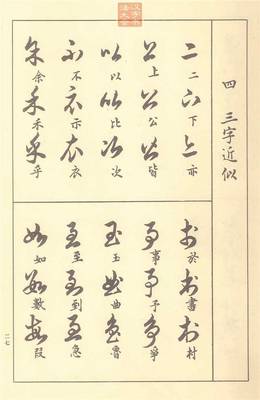 四 三字近似
二 下 亦
上 公 皆
以 比 次
不 示 衣
余 禾 乎
於 書 村
事 予 爭
玉 曲 魯
至 到 急
如 數 段
二七